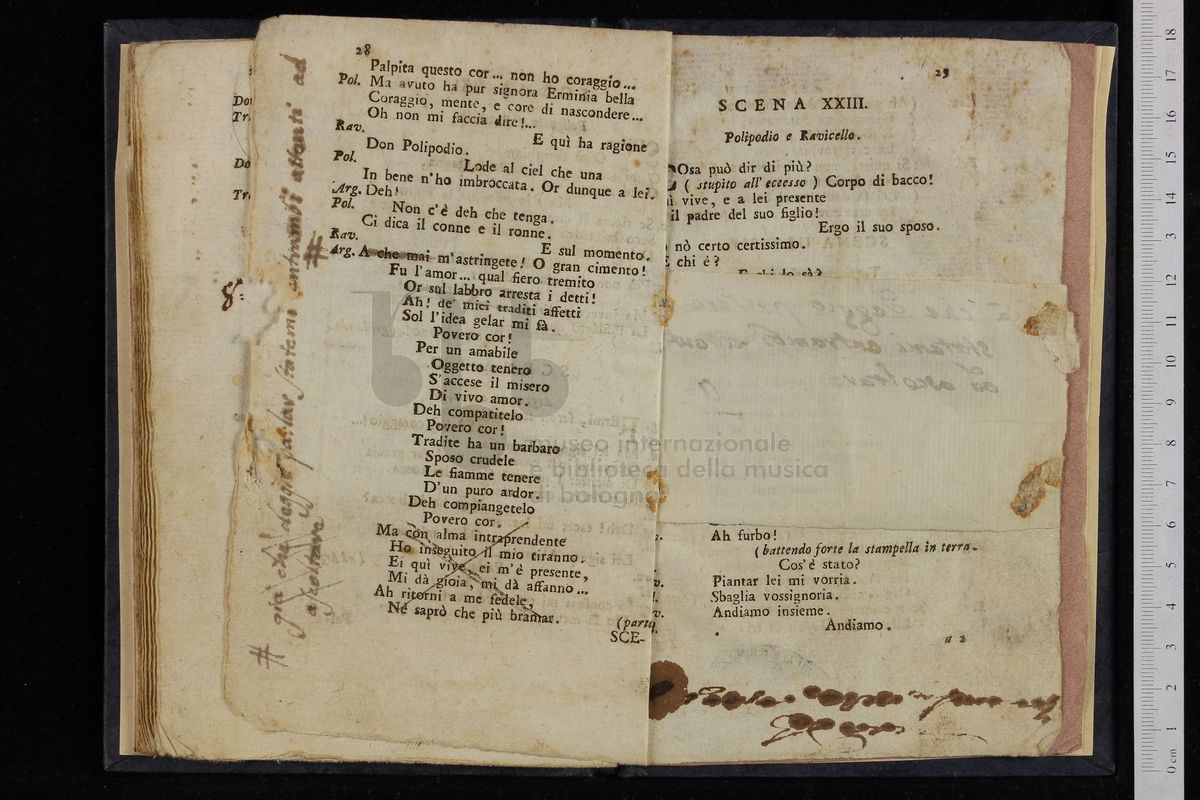 28
Palpita questo cor... non ho coraggio...
Pol. Ma avuto ha pur signora Erminia bella
Coraggio, mente, e core di nascondere...
Oh non mi faccia dire!...
Rav. E quì ha ragione
Don Polipodio.
Pol. Lode al ciel che una
In bene n'ho imbroccata. Or dunque a lei.
Arg. Deh!
Pol. Non c'è deh che tenga.
Ci dica il conne e il ronne.
Rav. E sul momento.
Arg. A che mai m'astringete! O gran cimento!
Fu l'amor... qual fiero tremito
Or sul labbro arresta i detti!
Ah! de' miei traditi affetti
Sol l'idea gelar mi fà.
Povero cor!
Per un amabile
Oggetto tenero
S'accese il misero
Di vivo amor.
Deh compatitelo
Povero cor!
Tradite ha un barbaro
Sposo crudele
Le fiamme tenere
D'un puro ardor.
Deh compiangetelo
Povero cor.
Ma con alma intraprendente
Ho inseguito il mio tiranno.
Ei quì vive, ei m'è presente,
Mi dà gioia, mi dà affanno...
Ah ritorni a me fedele,
Nè saprò che più bramar.
(parte
SCE-
# già che deggio parlar statemi entrambi attenti ad
ascoltare
#
8:
Do
Tr
Do
Tr
29
SCENA XXIII.
Polipodio e Ravicello.
Osa può dir di più?
( stupito all' eccesso ) Corpo di bacco!
vive, e a lei presente
il padre del suo figlio!
Ergo il suo sposo.
nò certo certissimo.
E chi è?
E chi lo sà?
Ah furbo!
(battendo forte la stampella in terra.
Cos'è stato?
Piantar lei mi vorria.
Sbaglia vossignoria.
Andiamo insieme.
Andiamo.
a 2
museo internazionale
e biblioteca della musica
di bologna
0 cm 1 2 3 4 5 6 7 8 9 10 11 12 13 14 15 16 17 18